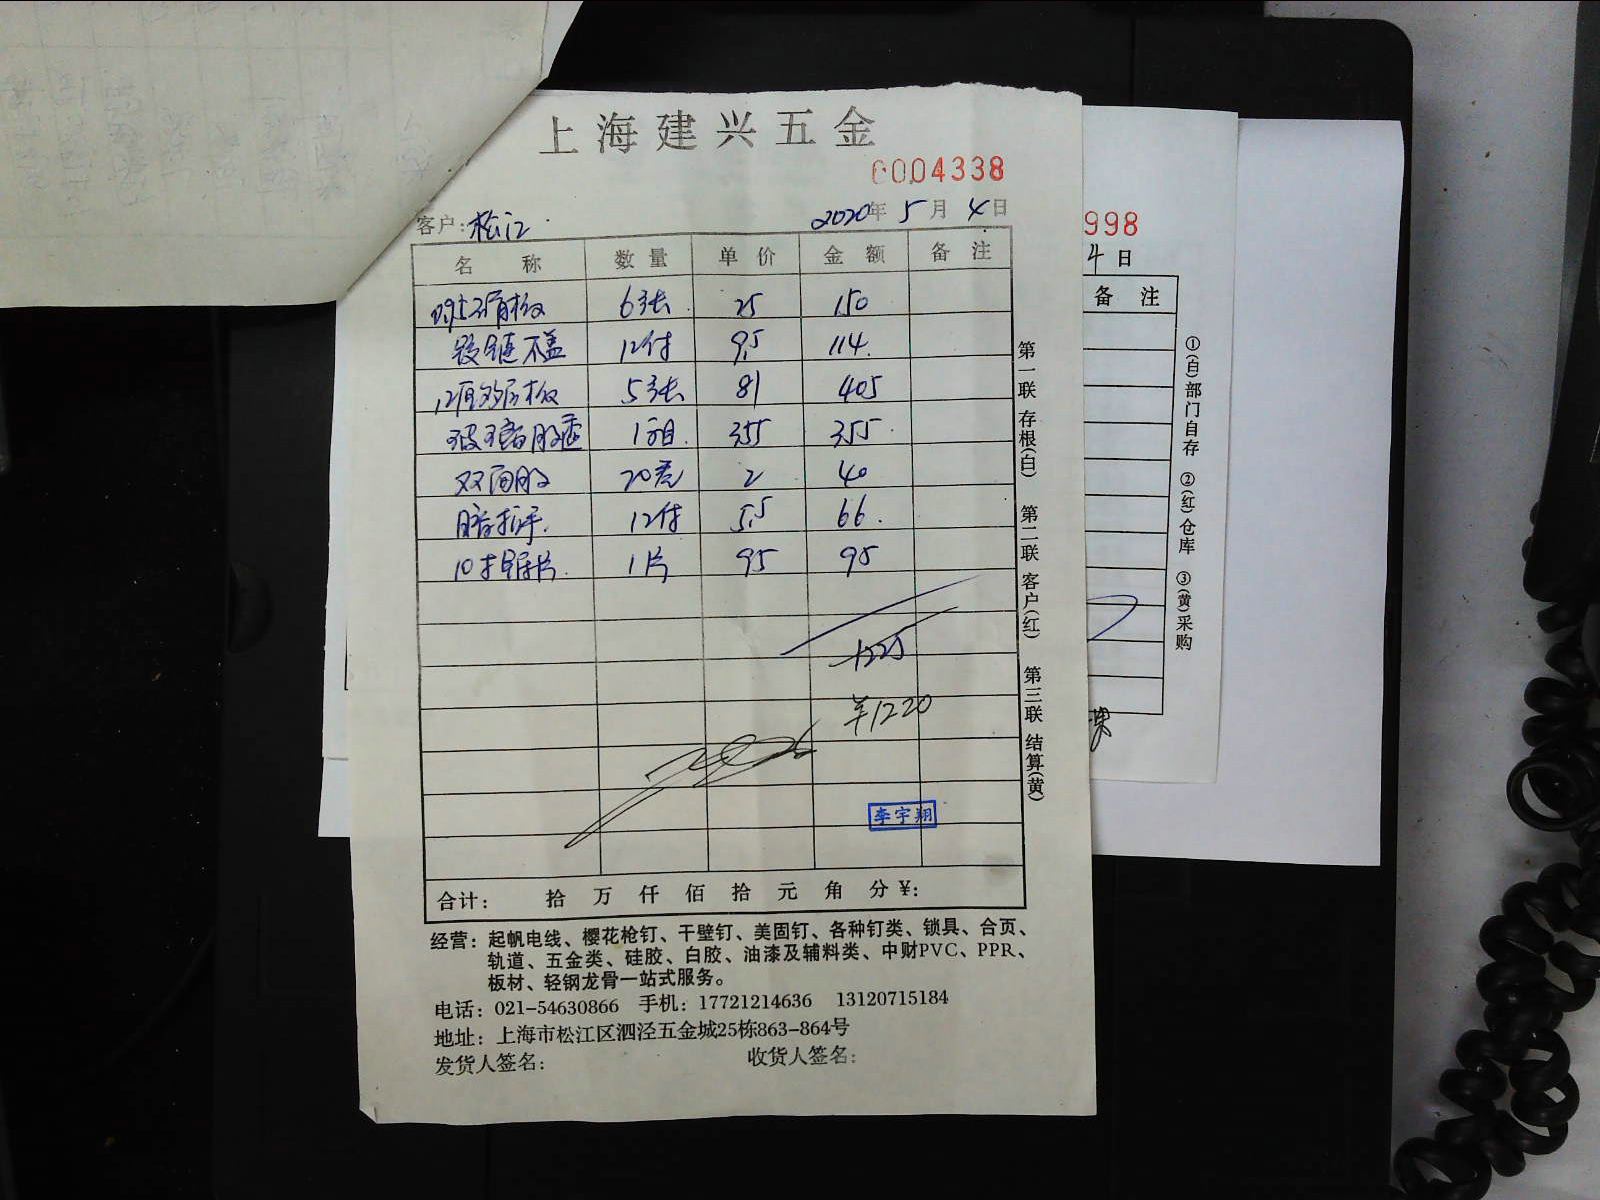 上海建兴五金
0004338
客户: 松江 2020年 5月 4日
名 称 数 量 单 价 金 额 备 注
6张 25 150
铰链不盖 12付 9.5 114
12厘多层板 5张 81 405
玻璃胶 1箱 355 355
双面胶 20卷 2 40
暗拉手 12付 5.5 66
10寸锯片 1片 95 95
1225
¥1220
李宇翔
合计: 拾 万 仟 佰 拾 元 角 分 ¥:
经营: 起帆电线、樱花枪钉、干壁钉、美固钉、各种钉类、锁具、合页、
轨道、五金类、硅胶、白胶、油漆及辅料类、中财PVC、PPR、
板材、轻钢龙骨一站式服务。
电话: 021-54630866 手机: 17721214636 13120715184
地址: 上海市松江区泗泾五金城25栋863-864号
发货人签名: 收货人签名:
第一联 存根(白) 第二联 客户(红) 第三联 结算(黄)
998
4日
备 注
①(白)部门自存 ②(红)仓库 ③(黄)采购